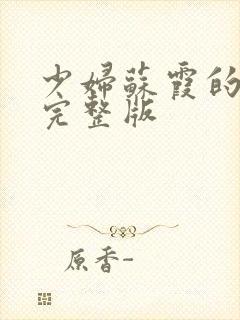 少婦蘇霞的
完整版
原香-